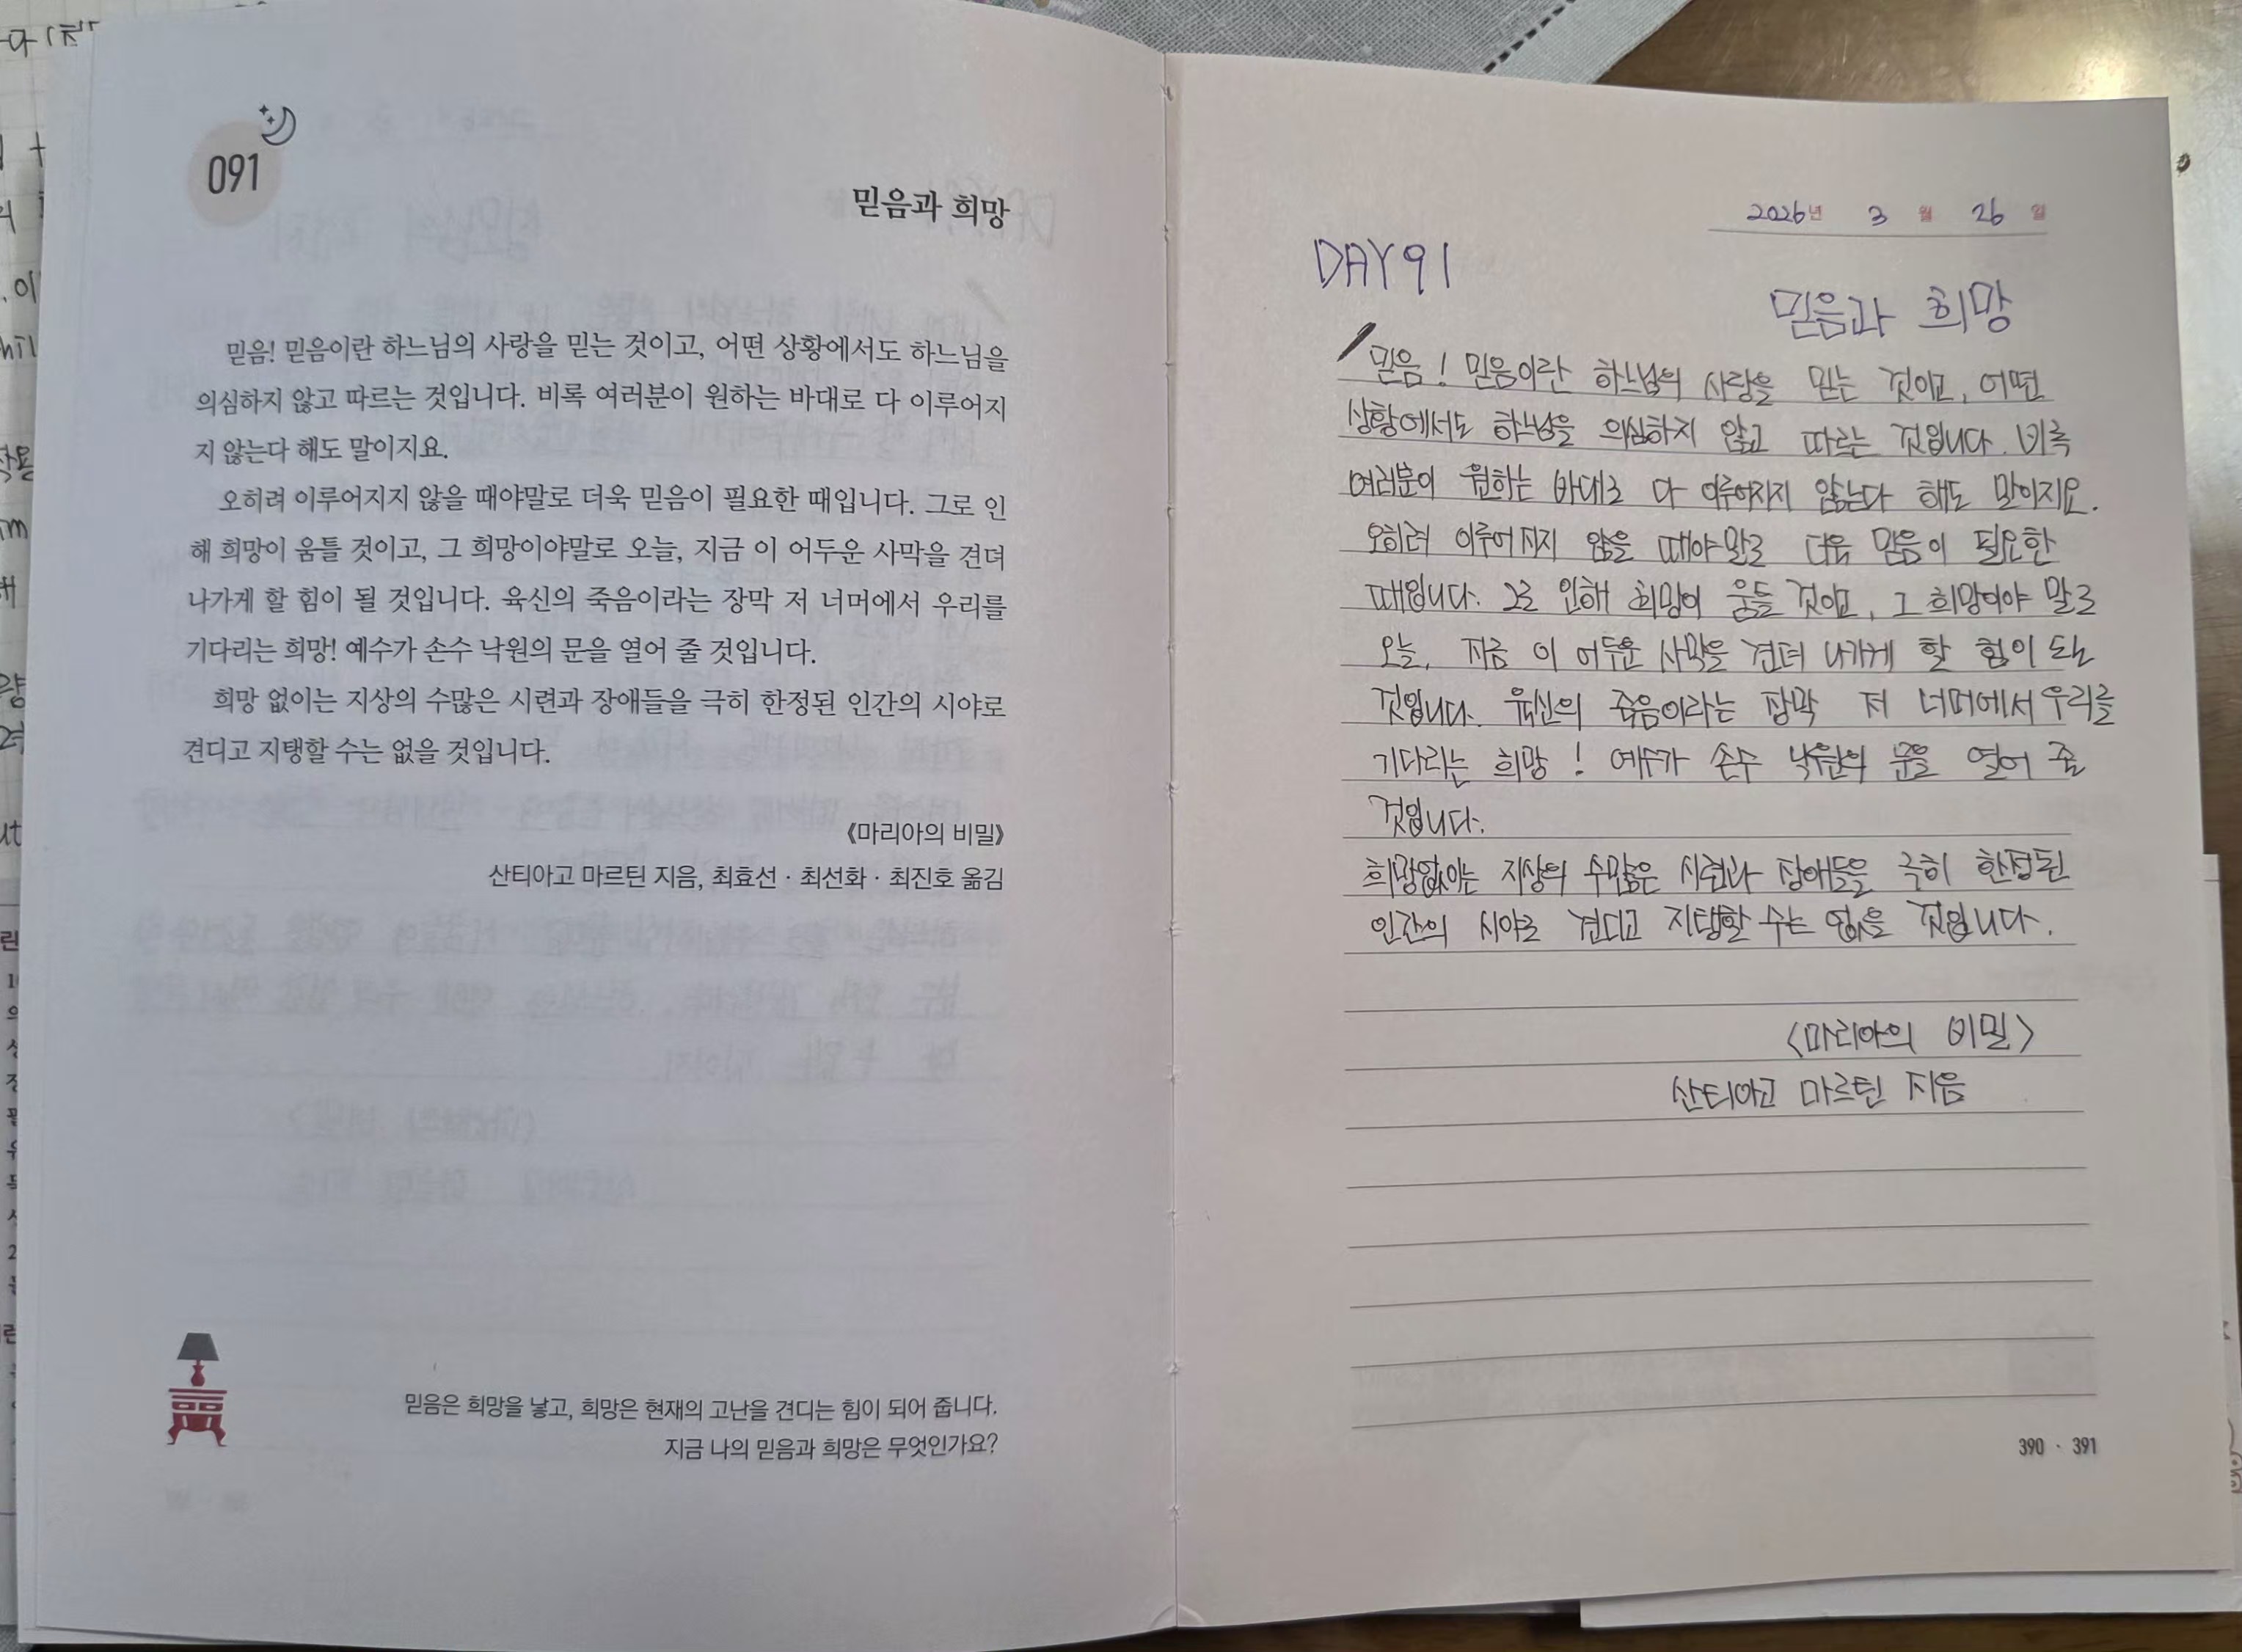 091
믿음과 희망
믿음! 믿음이란 하느님의 사랑을 믿는 것이고, 어떤 상황에서도 하느님을
의심하지 않고 따르는 것입니다. 비록 여러분이 원하는 바대로 다 이루어지
지 않는다 해도 말이지요.
오히려 이루어지지 않을 때야말로 더욱 믿음이 필요한 때입니다. 그로 인
해 희망이 움틀 것이고, 그 희망이야말로 오늘, 지금 이 어두운 사막을 견뎌
나가게 할 힘이 될 것입니다. 육신의 죽음이라는 장막 저 너머에서 우리를
기다리는 희망! 예수가 손수 낙원의 문을 열어 줄 것입니다.
희망 없이는 지상의 수많은 시련과 장애들을 극히 한정된 인간의 시야로
견디고 지탱할 수는 없을 것입니다.
《마리아의 비밀》
산티아고 마르틴 지음, 최효선 · 최선화 · 최진호 옮김
믿음은 희망을 낳고, 희망은 현재의 고난을 견디는 힘이 되어 줍니다.
지금 나의 믿음과 희망은 무엇인가요?
2026년 3 월 26 일
DAY 91
믿음과 희망
믿음! 믿음이란 하느님의 사랑을 믿는 것이고, 어떤
상황에서도 하느님을 의심하지 않고 따르는 것입니다. 비록
여러분이 원하는 바대로 다 이루어지지 않는다 해도 말이지요.
오히려 이루어지지 않을 때야말로 더욱 믿음이 필요한
때입니다. 그로 인해 희망이 움틀 것이고, 그 희망이야 말로
오늘, 지금 이 어두운 사막을 견뎌 나가게 할 힘이 될
것입니다. 육신의 죽음이라는 장막 저 너머에서 우리를
기다리는 희망! 예수가 손수 낙원의 문을 열어 줄
것입니다.
희망없이는 지상의 수많은 시련과 장애들을 극히 한정된
인간의 시야로 견디고 지탱할 수는 없을 것입니다.
<마리아의 비밀>
산티아고 마르틴 지음
390 · 391